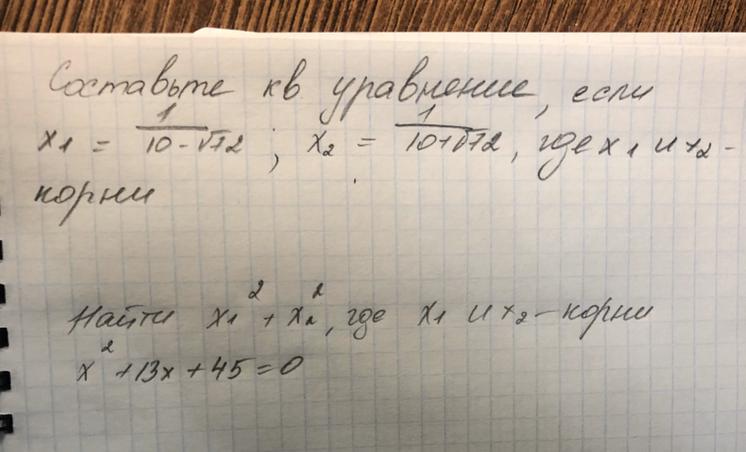 Составьте кв уравнение, если
x₁ = 1/(10-√72) ; x₂ = 1/(10+√72), где x₁ и x₂ -
корни
Найти x₁² + x₂², где x₁ и x₂ - корни
x² + 13x + 45 = 0